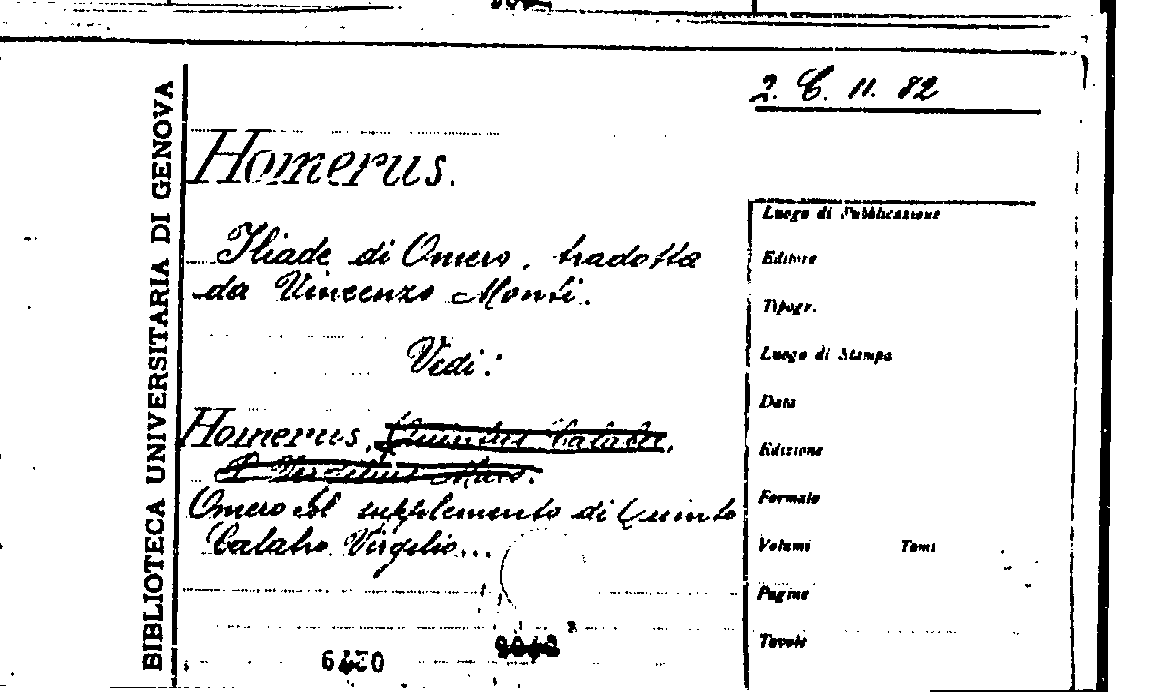 BIBLIOTECA UNIVERSITARIA DI GENOVA
2. C. 11. 82
Homerus.
Iliade di Omero, tradotta
da Vincenzo Monti.
Vedi:
Homerus, Quintus Calaber,
P. Vergilius Maro.
Omero Il supplemento di Quinto
Calabro Virgilio...
Luogo di Pubblicazione
Editore
Tipogr.
Luogo di Stampa
Data
Edizione
Formato
Volumi Tomi
Pagine
Tavole